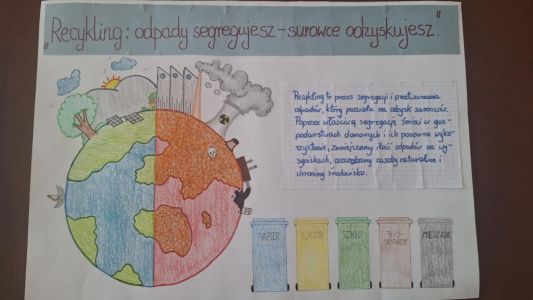 „Recykling: odpady segregujesz - surowce odzyskujesz."
Recykling to proces segregacji i przetwarzania
odpadów, który pozwala na odzysk surowców.
Poprzez właściwą segregację śmieci w gos-
podarstwach domowych i ich ponowne wyko-
rzystanie, zmniejszamy ilość odpadów na wy-
sypiskach, oszczędzamy zasoby naturalne i
chronimy środowisko.
PAPIER
PLASTIK
SZKŁO
BIO
ODPADY
MIESZANE